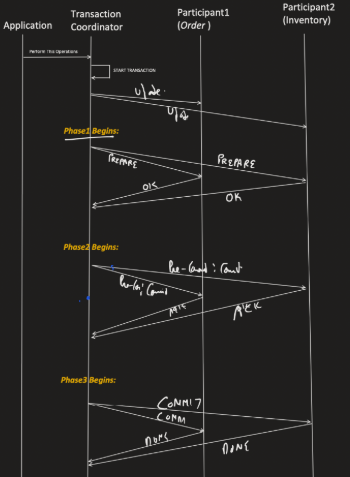 Application
Transaction
Coordinator
Participant1
(Order )
Participant2
(Inventory)
Perform This Operations
START TRANSACTION
Phase1 Begins:
PREPARE
PREPARE
OK
OK
Phase2 Begins:
ACK
ACK
Phase3 Begins:
COMMIT
COMM
DONE
DONE